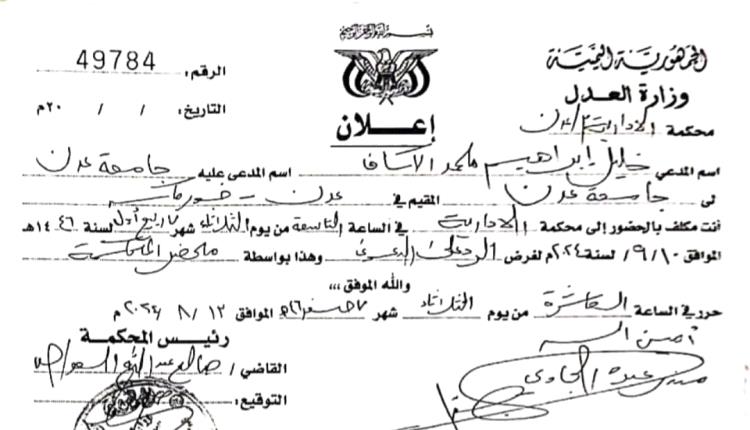 بسم الله الرحمن الرحيم
الجمهورية اليمنية
وزارة العدل
محكمة الادارية م/عدن
الرقم: 49784
التاريخ: / / ٢٠م
إعلان
اسم المدعي خليل ابراهيم محمد الاسكاف اسم المدعى عليه جامعة عدن
لى جامعة عدن المقيم في عدن - خور مكسر
أنت مكلف بالحضور إلى محكمة الادارية في الساعة التاسعة من يوم الثلاثاء شهر ٧ ربيع أول لسنة ١٤٤٦هـ
الموافق ٩/١٠/ لسنة ٢٠٢٤م لفرض الرد على الدعوى وهذا بواسطة محضر المحكمة
والله الموفق ,,,
حرر في الساعة العاشرة من يوم الثلاثاء شهر ٧ صفر ٤٦هـ الموافق ١٣/ ٨/ ٢٠٢٤م
رئيس المحكمة
أمين السر
القاضي/ صالح عبد
التوقيع: